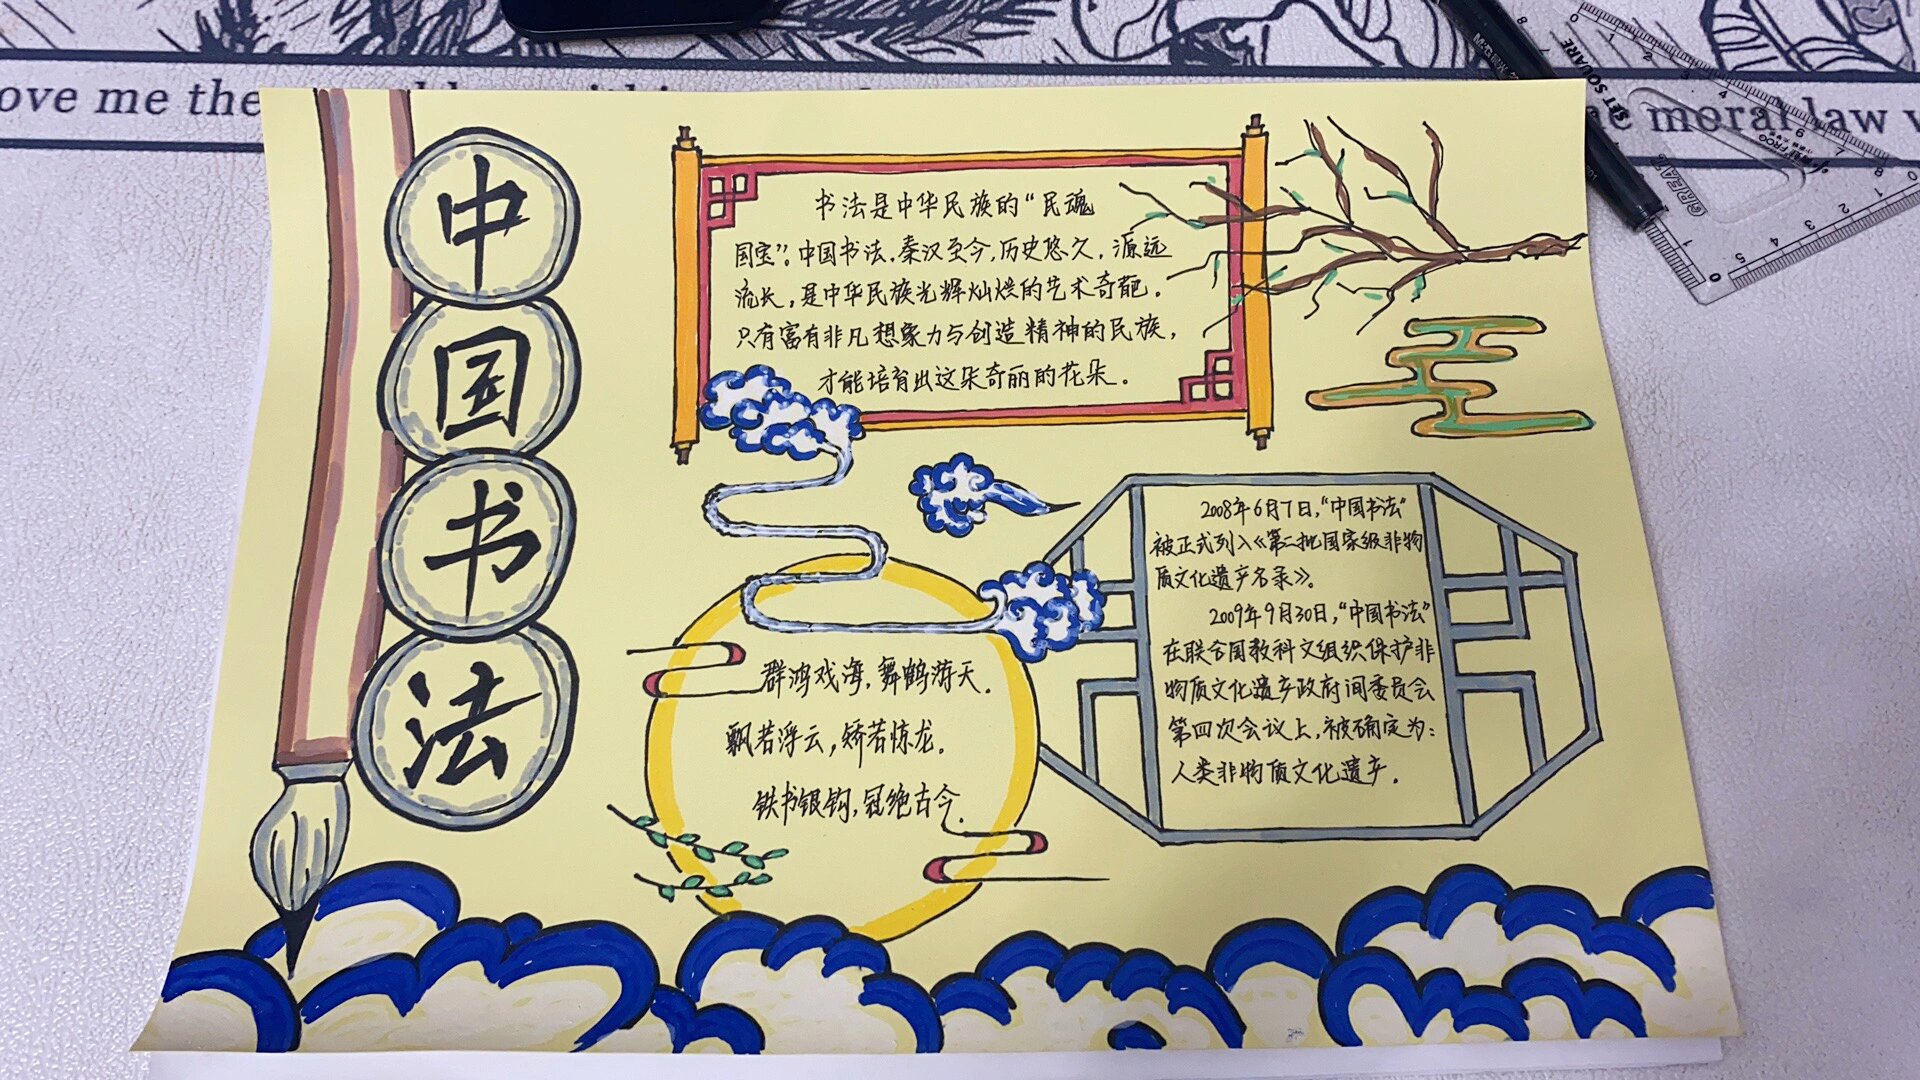 ove me the
e moral law v
SET SQUARE
GREAT
中
国
书
法
书法是中华民族的“民魂
国宝”。中国书法,秦汉至今,历史悠久,源远
流长,是中华民族光辉灿烂的艺术奇葩。
只有富有非凡想象力与创造精神的民族,
才能培育出这朵奇丽的花朵。
2008年6月7日,“中国书法”
被正式列入《第二批国家级非物
质文化遗产名录》。
2009年9月30日,“中国书法”
在联合国教科文组织保护非
物质文化遗产政府间委员会
第四次会议上,被确定为:
人类非物质文化遗产.
群鸿戏海,舞鹤游天.
飘若浮云,矫若惊龙.
铁书银钩,冠绝古今.